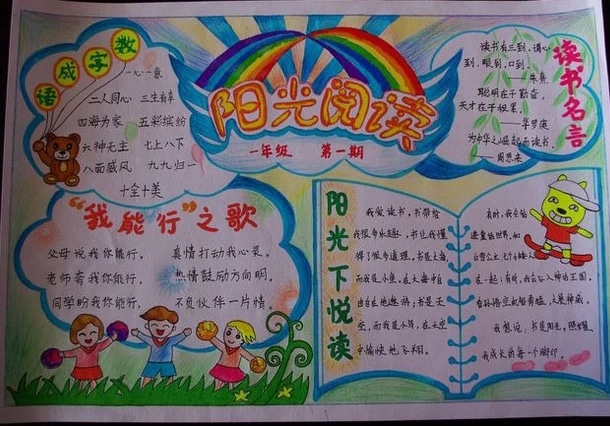 数字成语
一心一意
二人同心 三生有幸
四海为家 五彩缤纷
六神无主 七上八下
八面威风 九九归一
十全十美
阳光阅读
一年级 第一期
读书名言
读书有三到，谓心
到，眼到，口到。
——朱熹
聪明在于勤奋，
天才在于积累。
——华罗庚
为中华之崛起而读书。
——周恩来
“我能行”之歌
父母说我你能行， 真情打动我心灵。
老师夸我你能行， 热情鼓励方向明。
同学盼我你能行， 不负伙伴一片情。
阳光下悦读
我爱读书，书带给
我很多乐趣，书让我懂
得了很多道理。书是大海，
而我是小鱼，在大海中自
由自在地遨游；书是天
空，而我是小鸟，在天空
中愉快地飞翔。
有时，我会
进童话世界，和
白雪公主、七个小矮人
在一起；有时，我会
看孙悟空
我想说：书是阳光，照耀
我成长的每一个脚印。